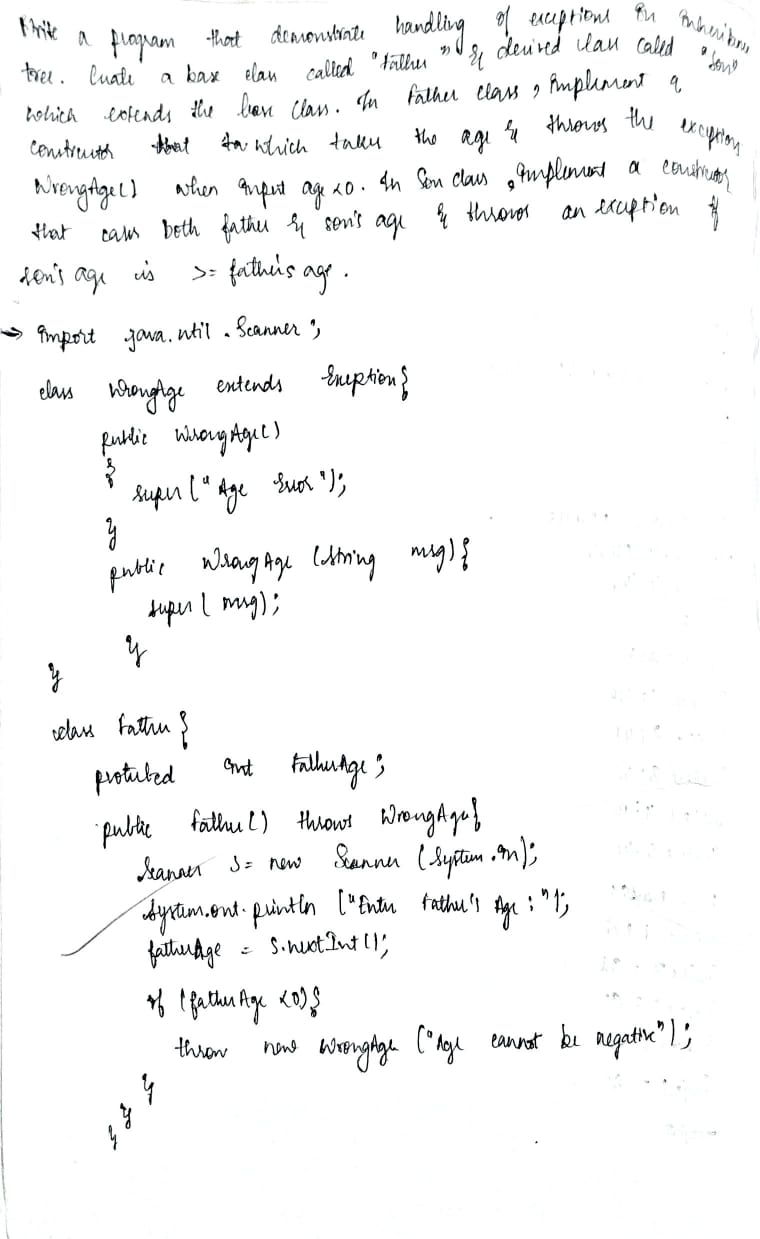 Write a program that demonstrate handling of exceptions in inheritance
tree. Create a base class called "Father" & derived class called "son"
which extends the base class. In Father class, implement a
constructor that in which takes the age & throws the exception
WrongAge() when input age <0. In Son class, implement a constructor
that cases both father & son's age & throws an exception if
son's age is >= father's age.
→ import java.util.Scanner;
class WrongAge extends Exception{
public WrongAge()
{
super("Age Error");
}
public WrongAge (String msg){
super(msg);
}
}
class Father{
protected int FatherAge;
public father() throws WrongAge{
Scanner s= new Scanner (System.in);
System.out.println ("Enter Father's Age :");
fatherAge = s.nextInt();
if (fatherAge <0){
throw new WrongAge ("Age cannot be negative");
}
}
}